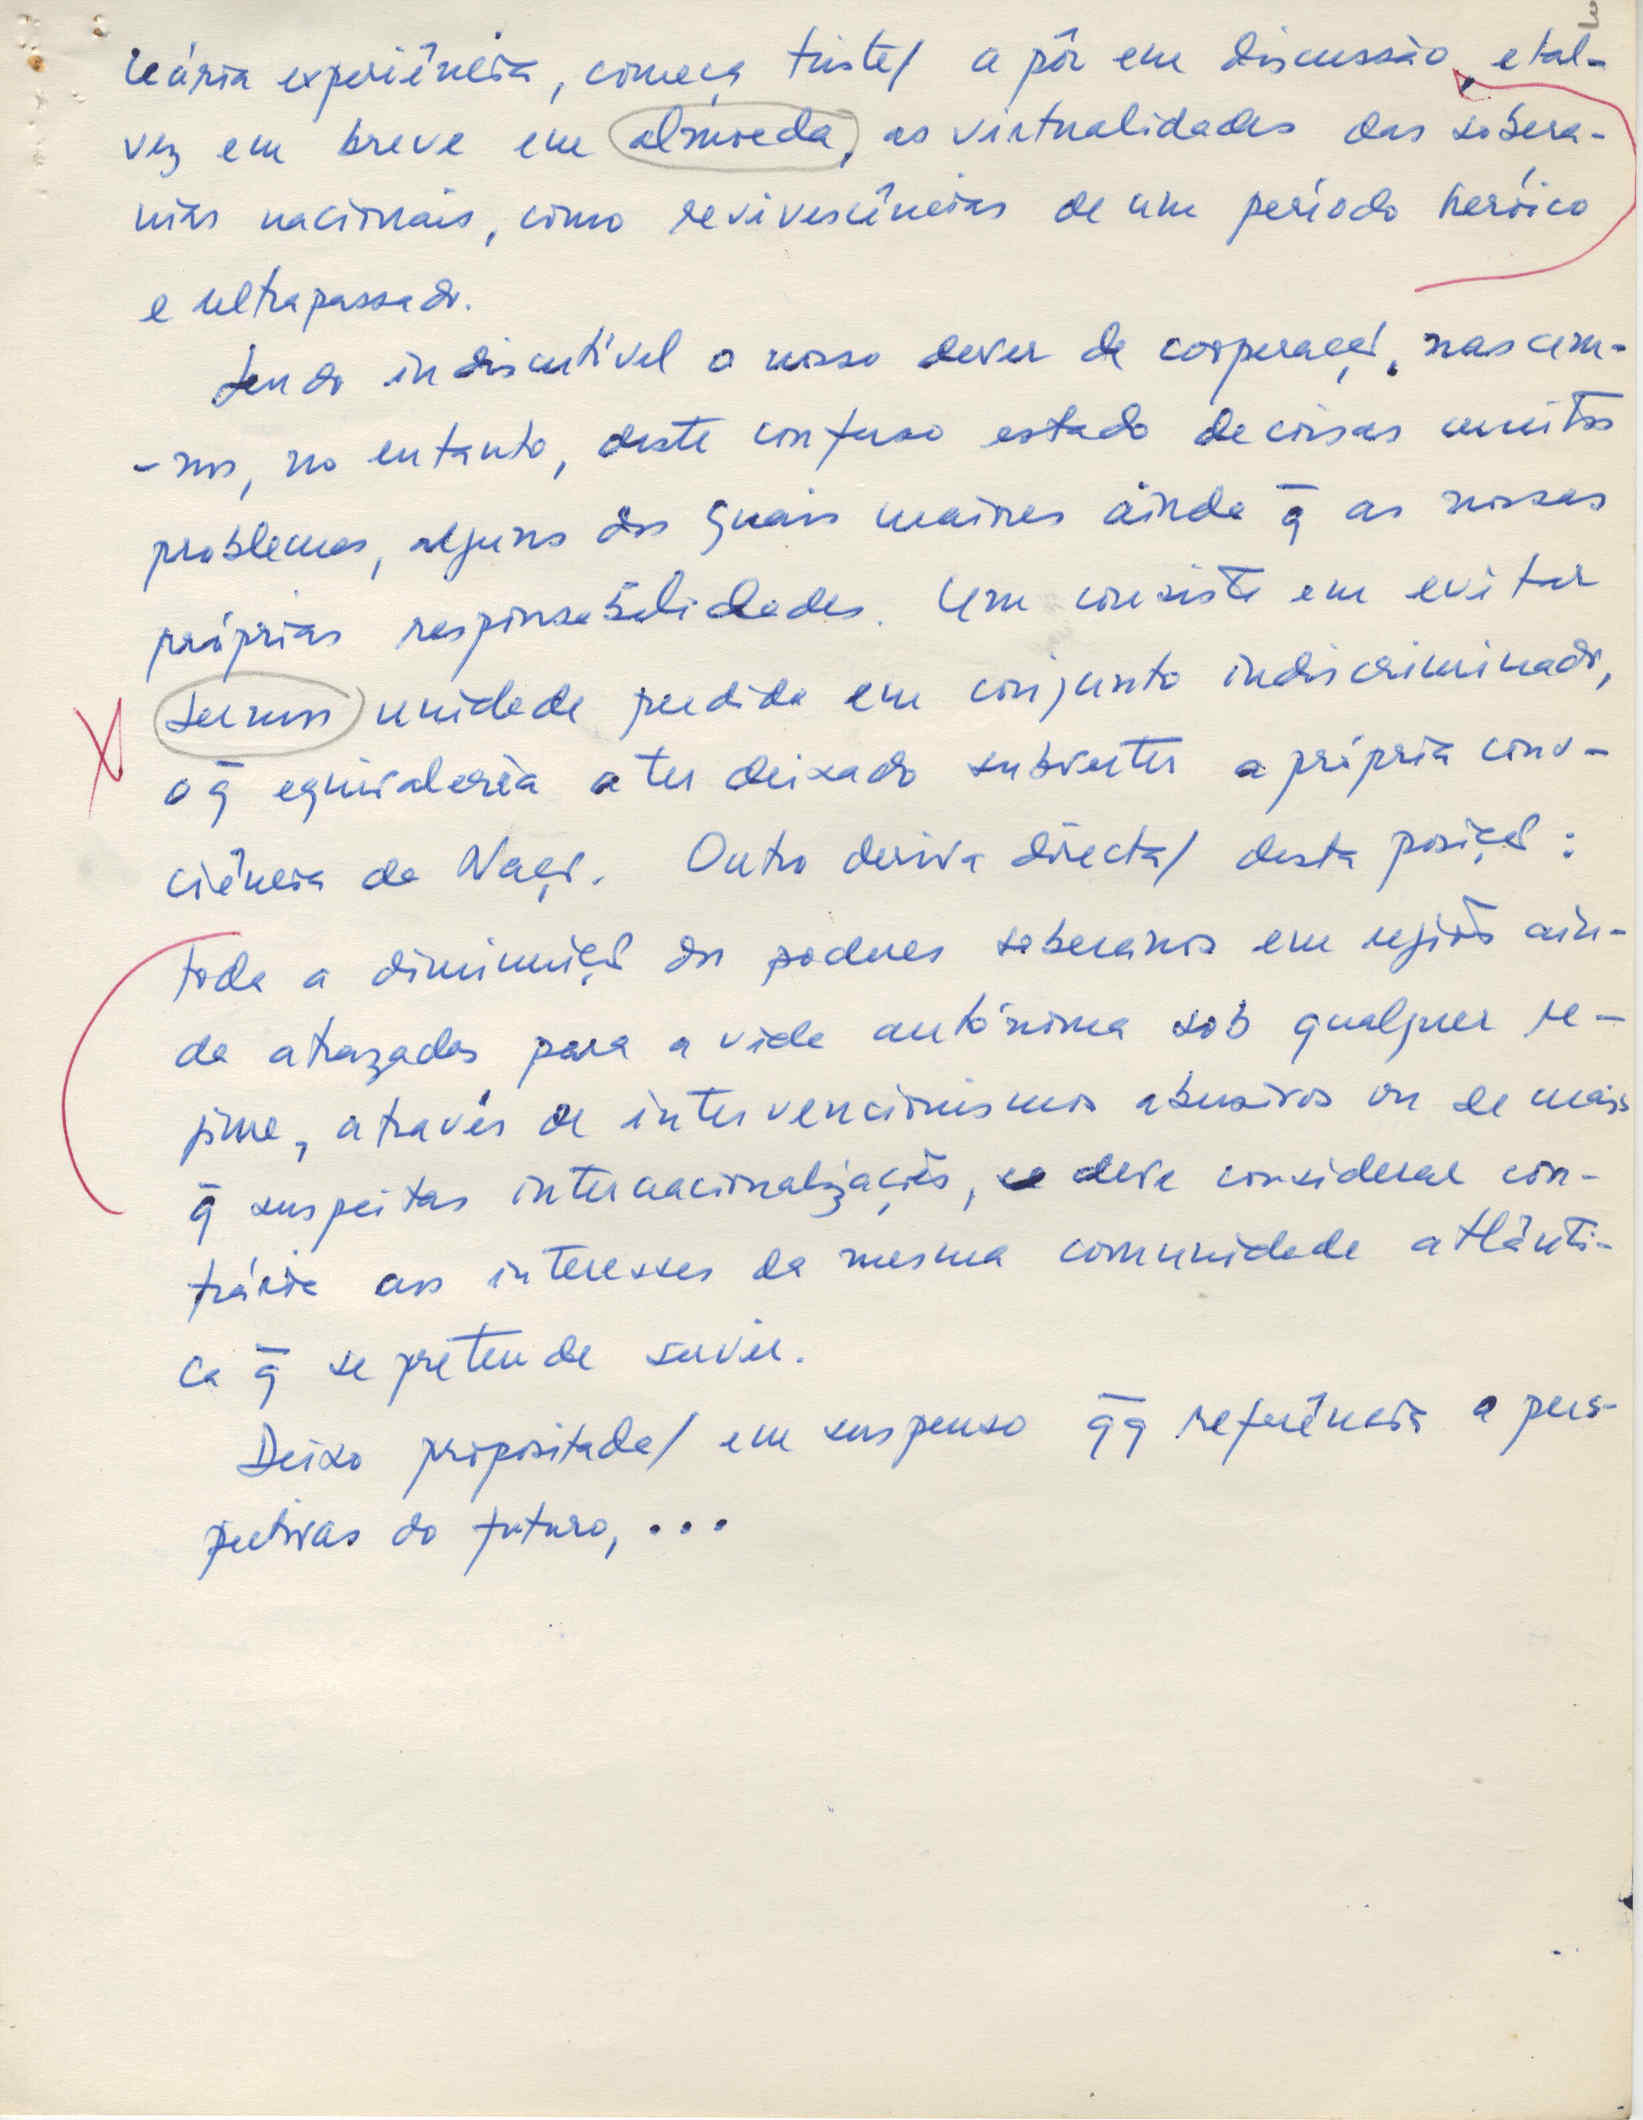 3
nária experiência, começa triste/ a pôr em discussão, e tal-
vez em breve em almoeda, as virtualidades das sobera-
nias nacionais, como revivescências de um período heróico
e ultrapassado.
Sendo indiscutível o nosso dever de cooperaçã, nascem-
-nos, no entanto, deste confuso estado de coisas muitos
problemas, alguns dos quais maiores ainda q̄ as nossas
próprias responsabilidades. Um consiste em evitar
sermos unidade perdida em conjunto indiscriminado,
o q̄ equivaleria a ter deixado subverter a própria cons-
ciência da Naçã. Outro deriva directa/ desta posiçã:
toda a diminuiçã dos poderes soberanos em regiões ain-
da atrazadas para a vida autónoma sob qualquer re-
gime, através de intervencionismos abusivos ou de mais
q̄ suspeitas internacionalizações, se deve considerar con-
trária aos interesses da mesma comunidade atlânti-
ca q̄ se pretende servir.
Deixo propositada/ em suspenso q̄q referência a pers-
pectivas do futuro, ...